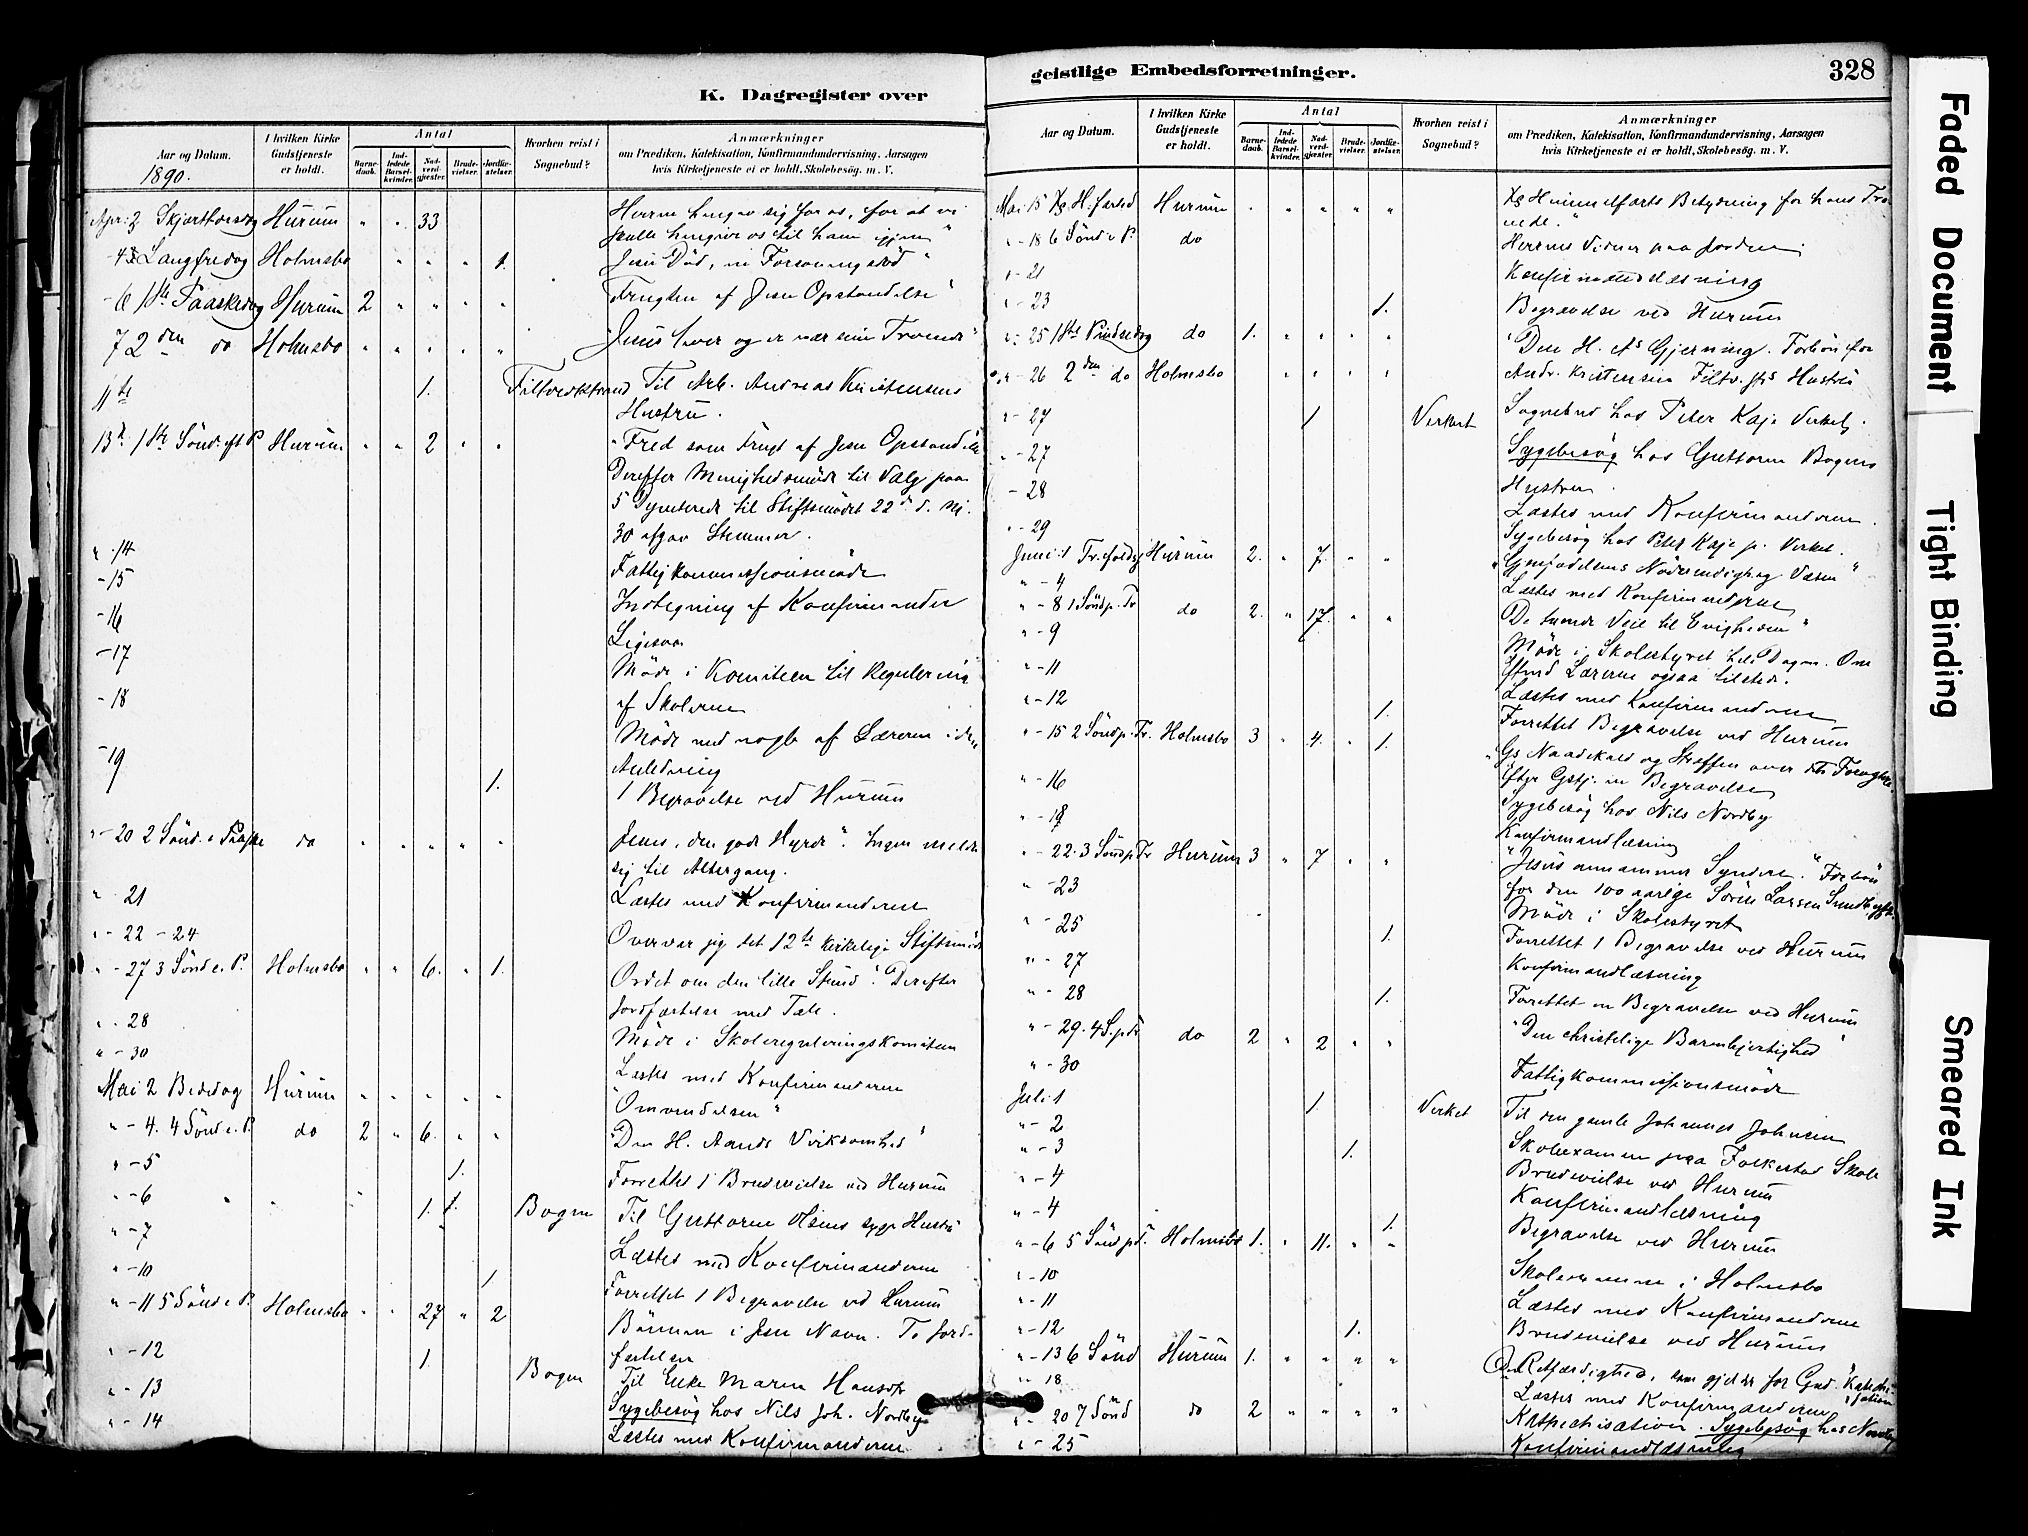 K. Dagregister over
Aar og Datum.
1890.
I hvilken Kirke Gudstjeneste er holdt.
Antal
Barnedaab.
Indledede Barselkvinder.
Nadverdgjester
Brudevielser.
Jordfæstelser.
Hvorhen reist i Sognebud?
Anmærkninger
om Prædiken, Katekisation, Konfirmandundervisning, Aarsagen
hvis Kirketjeneste ei er holdt, Skolebesøg. m. V.
Apr: 3 Skjærthorsdg Hurum " " 33 Herren hengav sig for os, for at vi
skulle hengive os til ham igjen "
- 4 Langfredag Holmsbo " " " " 1. Jesu Död, en Forsoningsdöd "
- 6 1ste Paaskedag Hurum 2 " " " " Frugten af Jesu Opstandelse "
7 2den do Holmsbo " " " " " "Jesus lever og er nær sine Troende "
11te 1. Filtvedtstrand Til Arb. Andreas Kristensens
Hustru.
13de 1ste Sönd. eft P Hurum " " 2 " " "Fred som Frugt af Jesu Opstandelse
Derefter Menighedsmöde til Valg paa
5 Deputerede til Stiftsmödet 22de d. M.
30 afgav Stemmer.
" -14 Fattigkommissionsmöde
-15 Indtegning af Konfirmander
-16 Ligesaa
-17 Möde i Komiteen til Regulering
-18 af Skolerne
Möde med nogle af Lærerne i den
-19 Anledning
1. 1 Begravelse ved Hurum
" -20 2 Sönd. e Paaske do " " " " " Jesus, den gode Hyrde". Ingen meldte
sig til Altergang.
" - 21 Læstes med Konfirmanderne
" - 22 - 24 Overvar jeg det 12te kirkelige Stiftsmöde
" - 27 3 Sönd e. P. Holmsbo " " 6. " 1. Ordet om den lille Stund". Derefter
Jordfæstelse med Tale.
" - 28 Möde i Skolereguleringskomiteen
" - 30 Læstes med Konfirmanderne
Mai 2 Bededag Hurum " " " " " "Omvendelsen"
" - 4. 4 Sönd e. P. do 2 " 6. " " "Den H. Aands Virksomhed"
" - 5 1. Forrettet 1 Brudevielse ved Hurum
" - 6 1. Bogen Til Guttorm Olsens syge Hustru
" - 7 Læstes med Konfirmanderne
" - 10 1. Forrettet 1 Begravelse ved Hurum
" - 11 5 Sönd e P. Holmsbo " " 27 " 2 Bönnen i Jesu Navn. To Jord-
fæstelser
" - 12 1. Bogen Til Enke Maren Hansdtr
" - 13 Sygebesög hos Nils Joh. Nordby
" - 14 Læstes med Konfirmanderne
geistlige Embedsforretninger.
328
Aar og Datum.
I hvilken Kirke Gudstjeneste er holdt.
Antal
Barnedaab.
Indledede Barselkvinder.
Nadverdgjester
Brudevielser.
Jordfæstelser.
Hvorhen reist i Sognebud?
Anmærkninger
om Prædiken, Katekisation, Konfirmandundervisning, Aarsagen
hvis Kirketjeneste ei er holdt, Skolebesøg. m. V.
Mai 15 Kr H. fartsd Hurum " " " " " Kr Himmelfarts Betydning for hans Tro-
ende."
" - 18 6 Sönd e P. do Herrens Vidner paa Jorden
" - 21 Konfirmandlæsning
" - 23 1. Begravelse ved Hurum
" - 25 1ste Pindsedag do 1. " " " " "Den H. As Gjerning. Forbön for
" - 26 2den do Holmsbo " " " " Andr. Kristensen Filtv. Hustru
" - 27 1 Verket Sognebud hos Peter Kaje Verket.
" - 27 Sygebesög hos Guttorm Bogens
- 28 Hustru.
Læstes med Konfirmanderne.
" - 29 Sygebesög hos Peter Kaje p. Verket.
Juni 1 Trefoldg. Hurum 2. " 7 " " "Gjenfödelsens Nödvendigh og Væsen"
" - 4 Læstes med Konfirmanderne
" - 8 1 Sönd p. Tr do 2. " 17. " " De tvende Veie til Evigheden"
" - 9 Möde i Skolestyret hele Dagen. Om
" - 11 Eftmd Lærerne ogsaa tilstede.
" - 12 Læstes med Konfirmanderne
1. Forrettet Begravelse ved Hurum
" - 15 2 Sönd p. Tr. Holmsbo 3 " 4. " 1. "Gs Naadekald og Straffen over dets Foragtere.
" - 16 Efter Gstj. en Begravelse
Sygebesög hos Nils Nordby
" - 19 Konfirmandlæsning
" - 22. 3 Sönd p Tr Hurum 3 " 7 " " "Jesus annammer Syndere." Forbön
" - 23 for den 100 aarige Sören Larsen
Möde i Skolestyret
" - 25 1. Forrettet 1 Begravelse ved Hurum
" - 27 Konfirmandlæsning
" - 28 1. Forrettet en Begravelse ved Hurum
" - 29. 4 S. p Tr do 2 " 2 " " "Den christelige Barmhjertighed"
" - 30 Fattigkommissionsmöde
Juli 1 1. Verket Til den gamle Johannes Johnsen
" - 2 Skoleexamen paa Folkestad Skole
" - 3 1. Brudevielse ved Hurum
" - 4 Konfirmandlæsning
" - 4 1. Begravelse ved Hurum
" - 6 5 Sönd p T. Holmsbo 1. " 11. " "
" - 10 Skoleexamen i Holmsbo
" - 11 Læstes med Konfirmanderne
" - 12 1. Brudevielse ved Hurum
" - 13 6 Sönd Hurum 1. " " " " Den Retfærdighed, som gjelder for Gud. Katechisation
" 18 Læstes med Konfirmanderne
" - 20 7 Sönd do 2 " " " " Katechisation Sygebesög hos Nordby
" - 25 Konfirmandlæsning
Faded Document
Tight Binding
Smeared Ink